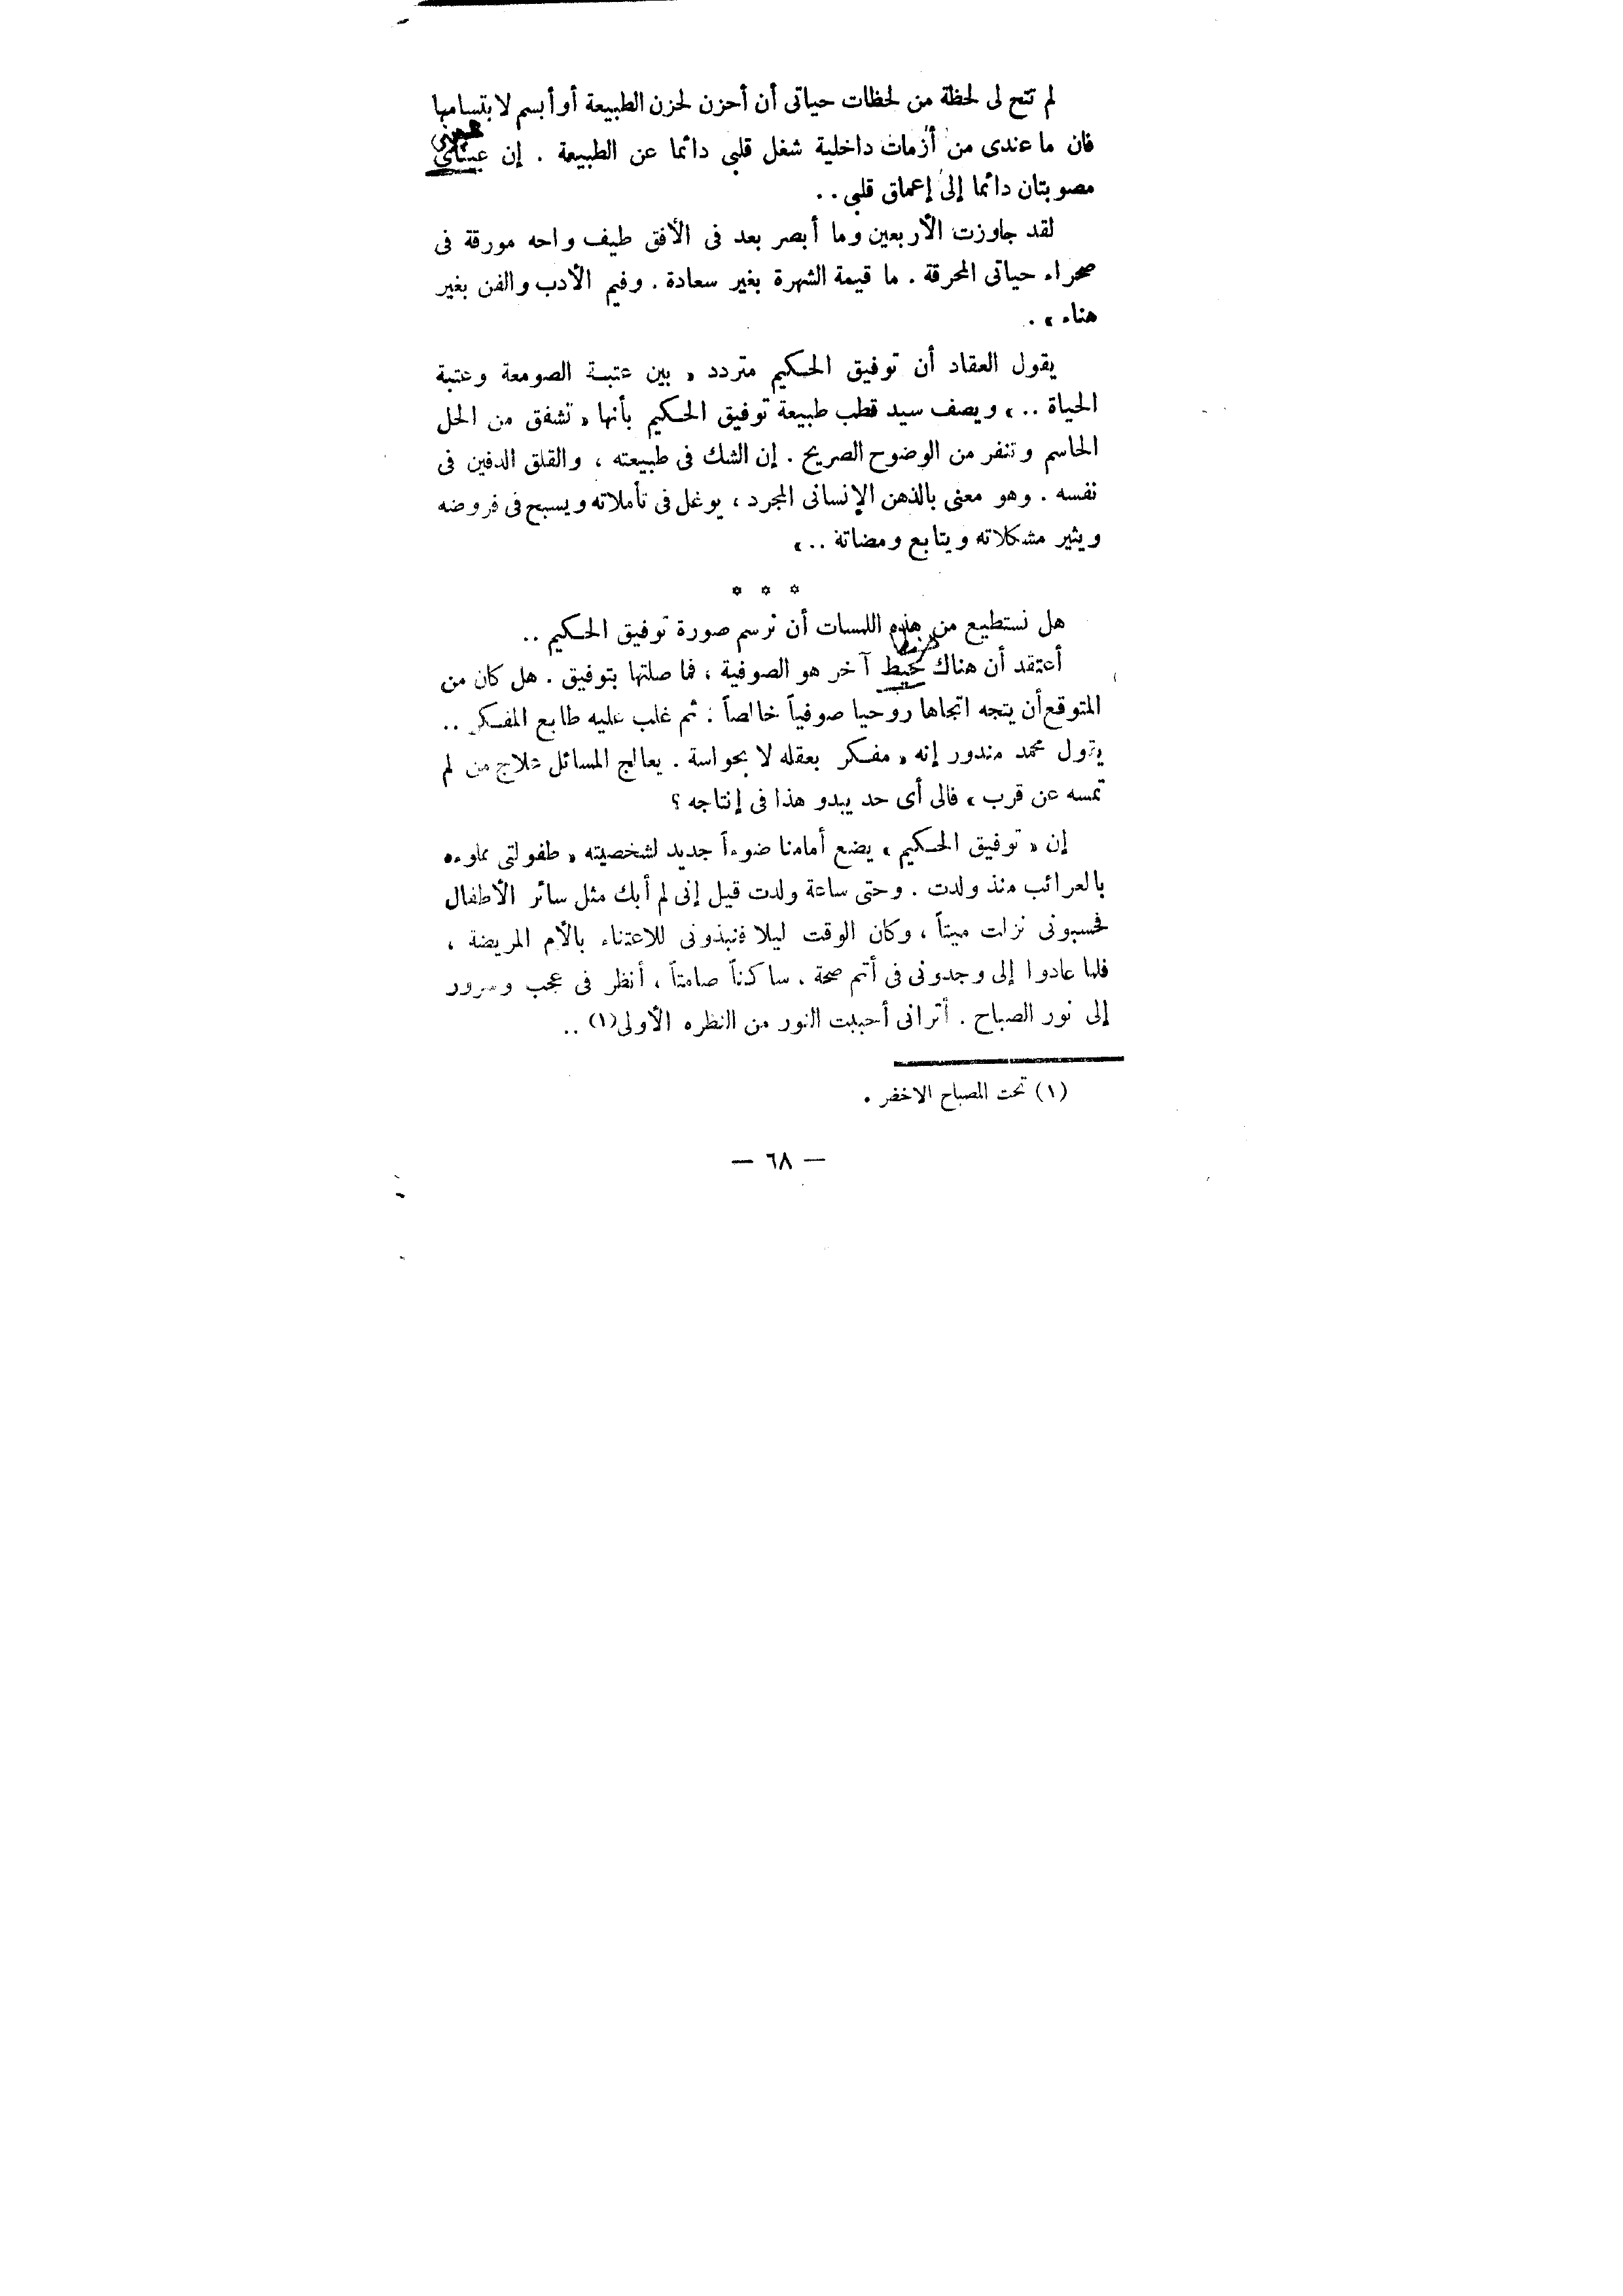 لم تتح لى لحظة من لحظات حياتى أن أحزن لحزن الطبيعة أو أبسم لابتسامها
فان ما عندى من أزمات داخلية شغل قلبى دائما عن الطبيعة . إن عيناى
مصوبتان دائما إلى إعماق قلبى . .
لقد جاوزت الأربعين وما أبصر بعد فى الأفق طيف واحه مورقة فى
صحراء حياتى المحرقة . ما قيمة الشهرة بغير سعادة . وفيم الأدب والفن بغير
هناء » .
يقول العقاد أن توفيق الحكيم متردد « بين عتبة الصومعة وعتبة
الحياة . . » ويصف سيد قطب طبيعة توفيق الحكيم بأنها « تشفق من الحل
الحاسم وتنفر من الوضوح الصريح . إن الشك فى طبيعته ، والقلق الدفين فى
نفسه . وهو معنى بالذهن الإنسانى المجرد ، يوغل فى تأملاته ويسبح فى فروضه
ويثير مشكلاته ويتابع ومضاتة . . »
* * *
هل نستطيع من هذه اللمسات أن نرسم صورة توفيق الحكيم . .
أعتقد أن هناك خيط آخر هو الصوفية ، فما صلتها بتوفيق . هل كان من
المتوقع أن يتجه اتجاها روحيا صوفياً خالصاً : ثم غلب عليه طابع المفكر . .
يقول محمد مندور إنه « مفكر بعقله لا بحواسة . يعالج المسائل علاج من لم
تمسه عن قرب » فالى أى حد يبدو هذا فى إنتاجه ؟
إن « توفيق الحكيم » يضع أمامنا ضوءاً جديد لشخصيته « طفولتى مملوءه
بالعرائب منذ ولدت . وحتى ساعة ولدت قيل إنى لم أبك مثل سائر الأطفال
فحسبونى نزلت ميتاً ، وكان الوقت ليلا فنبذونى للاعتناء بالأم المريضة ،
فلما عادوا إلى وجدونى فى أتم صحة . ساكناً صامتاً ، أنظر فى عجب وسرور
إلى نور الصباح . أترانى أحببت النور من النظره الأولى(١) . .
(١) تحت المصباح الاخضر .
— ٦٨ —